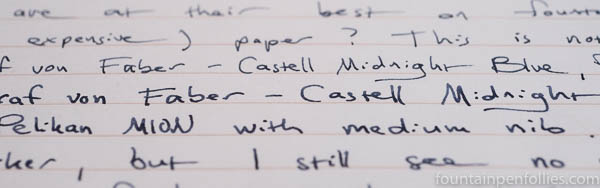 are at their best on
expensive ) paper ? This is not
f von Faber - Castell Midnight Blue,
raf von Faber - Castell Midnight
Pelikan M101N with medium nib .
ker, but I still see no
fountainpenfollies.com